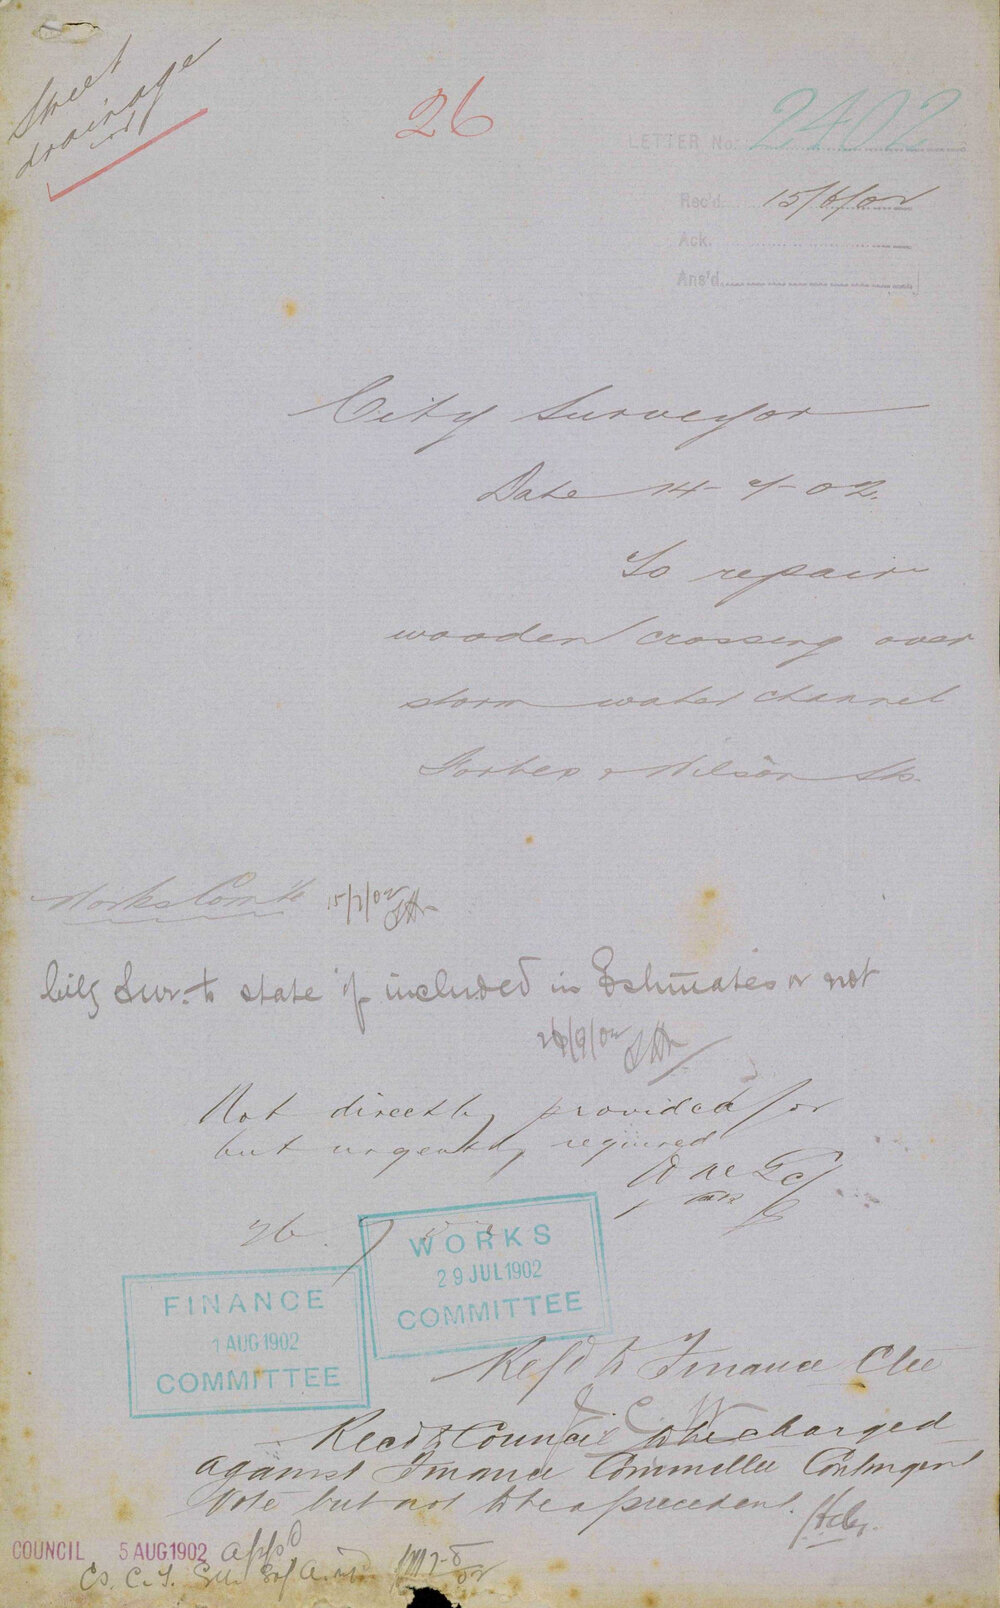 Street
drainage
26
LETTER No. 2402
Rec'd 15/6/02
Ack.
Ans'd
City Surveyor
Date 14-7-02.
To repair
wooden crossing over
storm water channel
Forbes & Wilson Sts.
Works Comte 15/7/02
City Sur. to state if included in Estimates or not
Not directly provided for
but urgently required
26. 7
WORKS
29 JUL 1902
COMMITTEE
FINANCE
1 AUG 1902
COMMITTEE
Refd to Finance Ctee
Recd to Council to be charged
against Finance Committee Contingent
Vote but not to be a precedent.
COUNCIL 5 AUG 1902 appd
Cs. C.T. Sur.